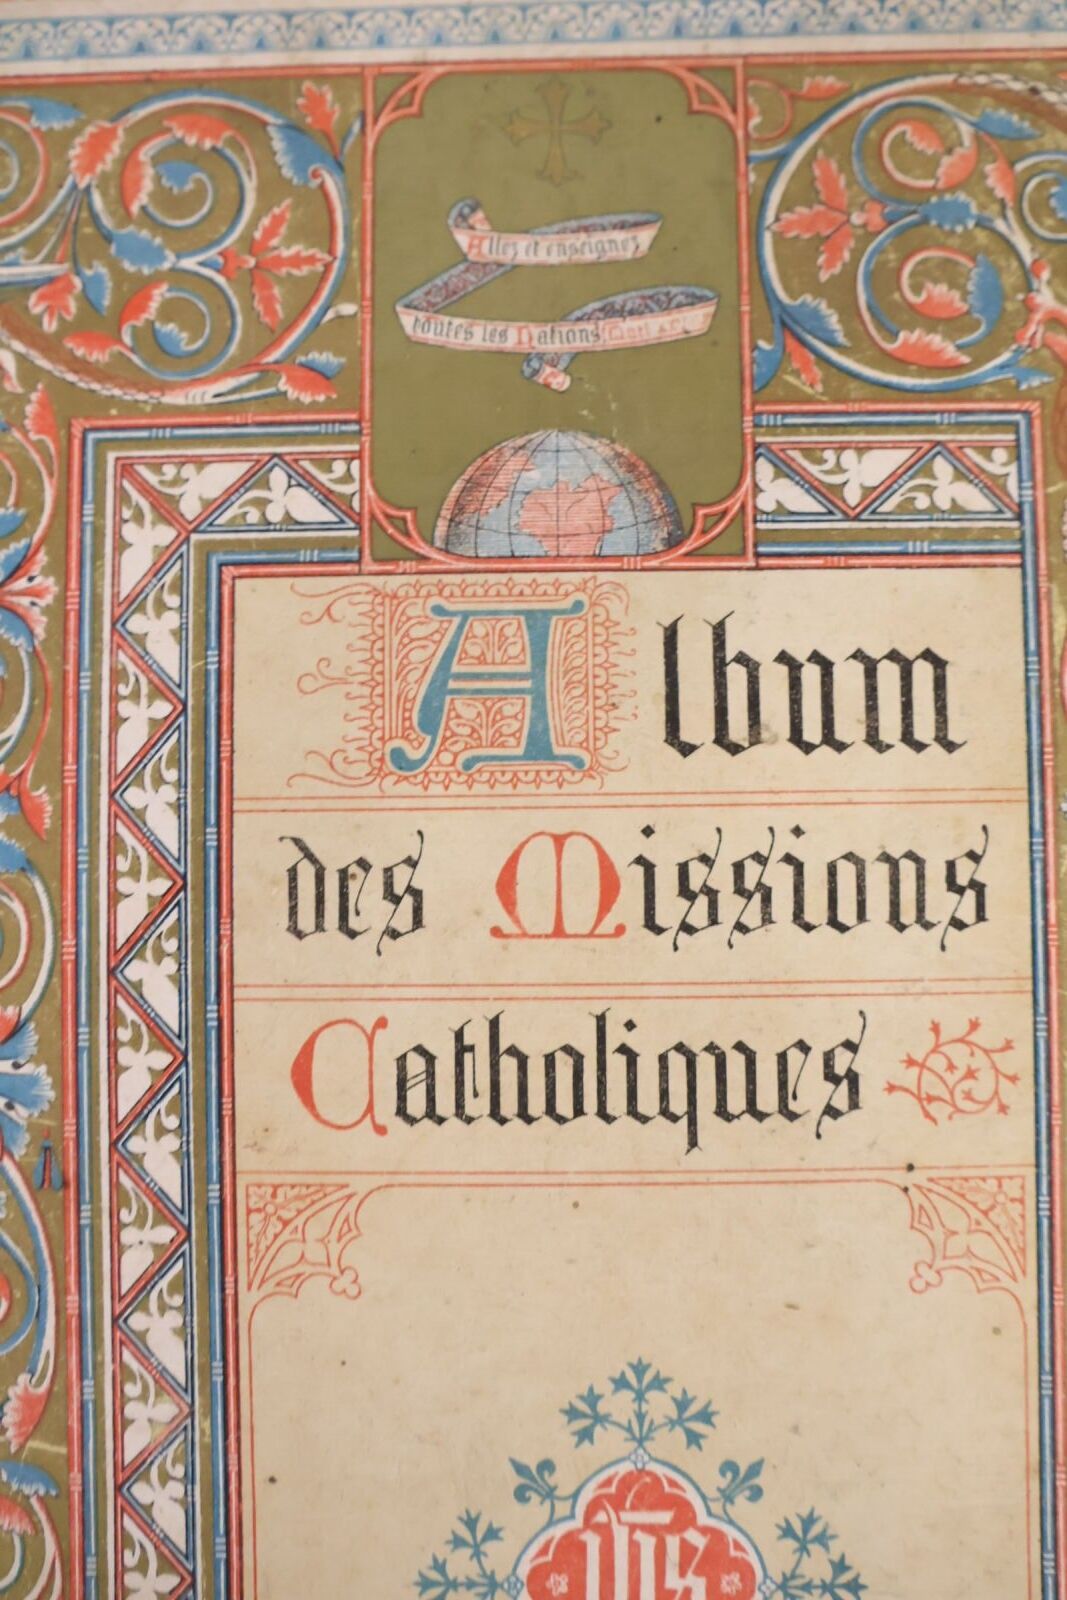 Allez et enseignez
toutes les Nations
Album
des Missions
Catholiques
ihs